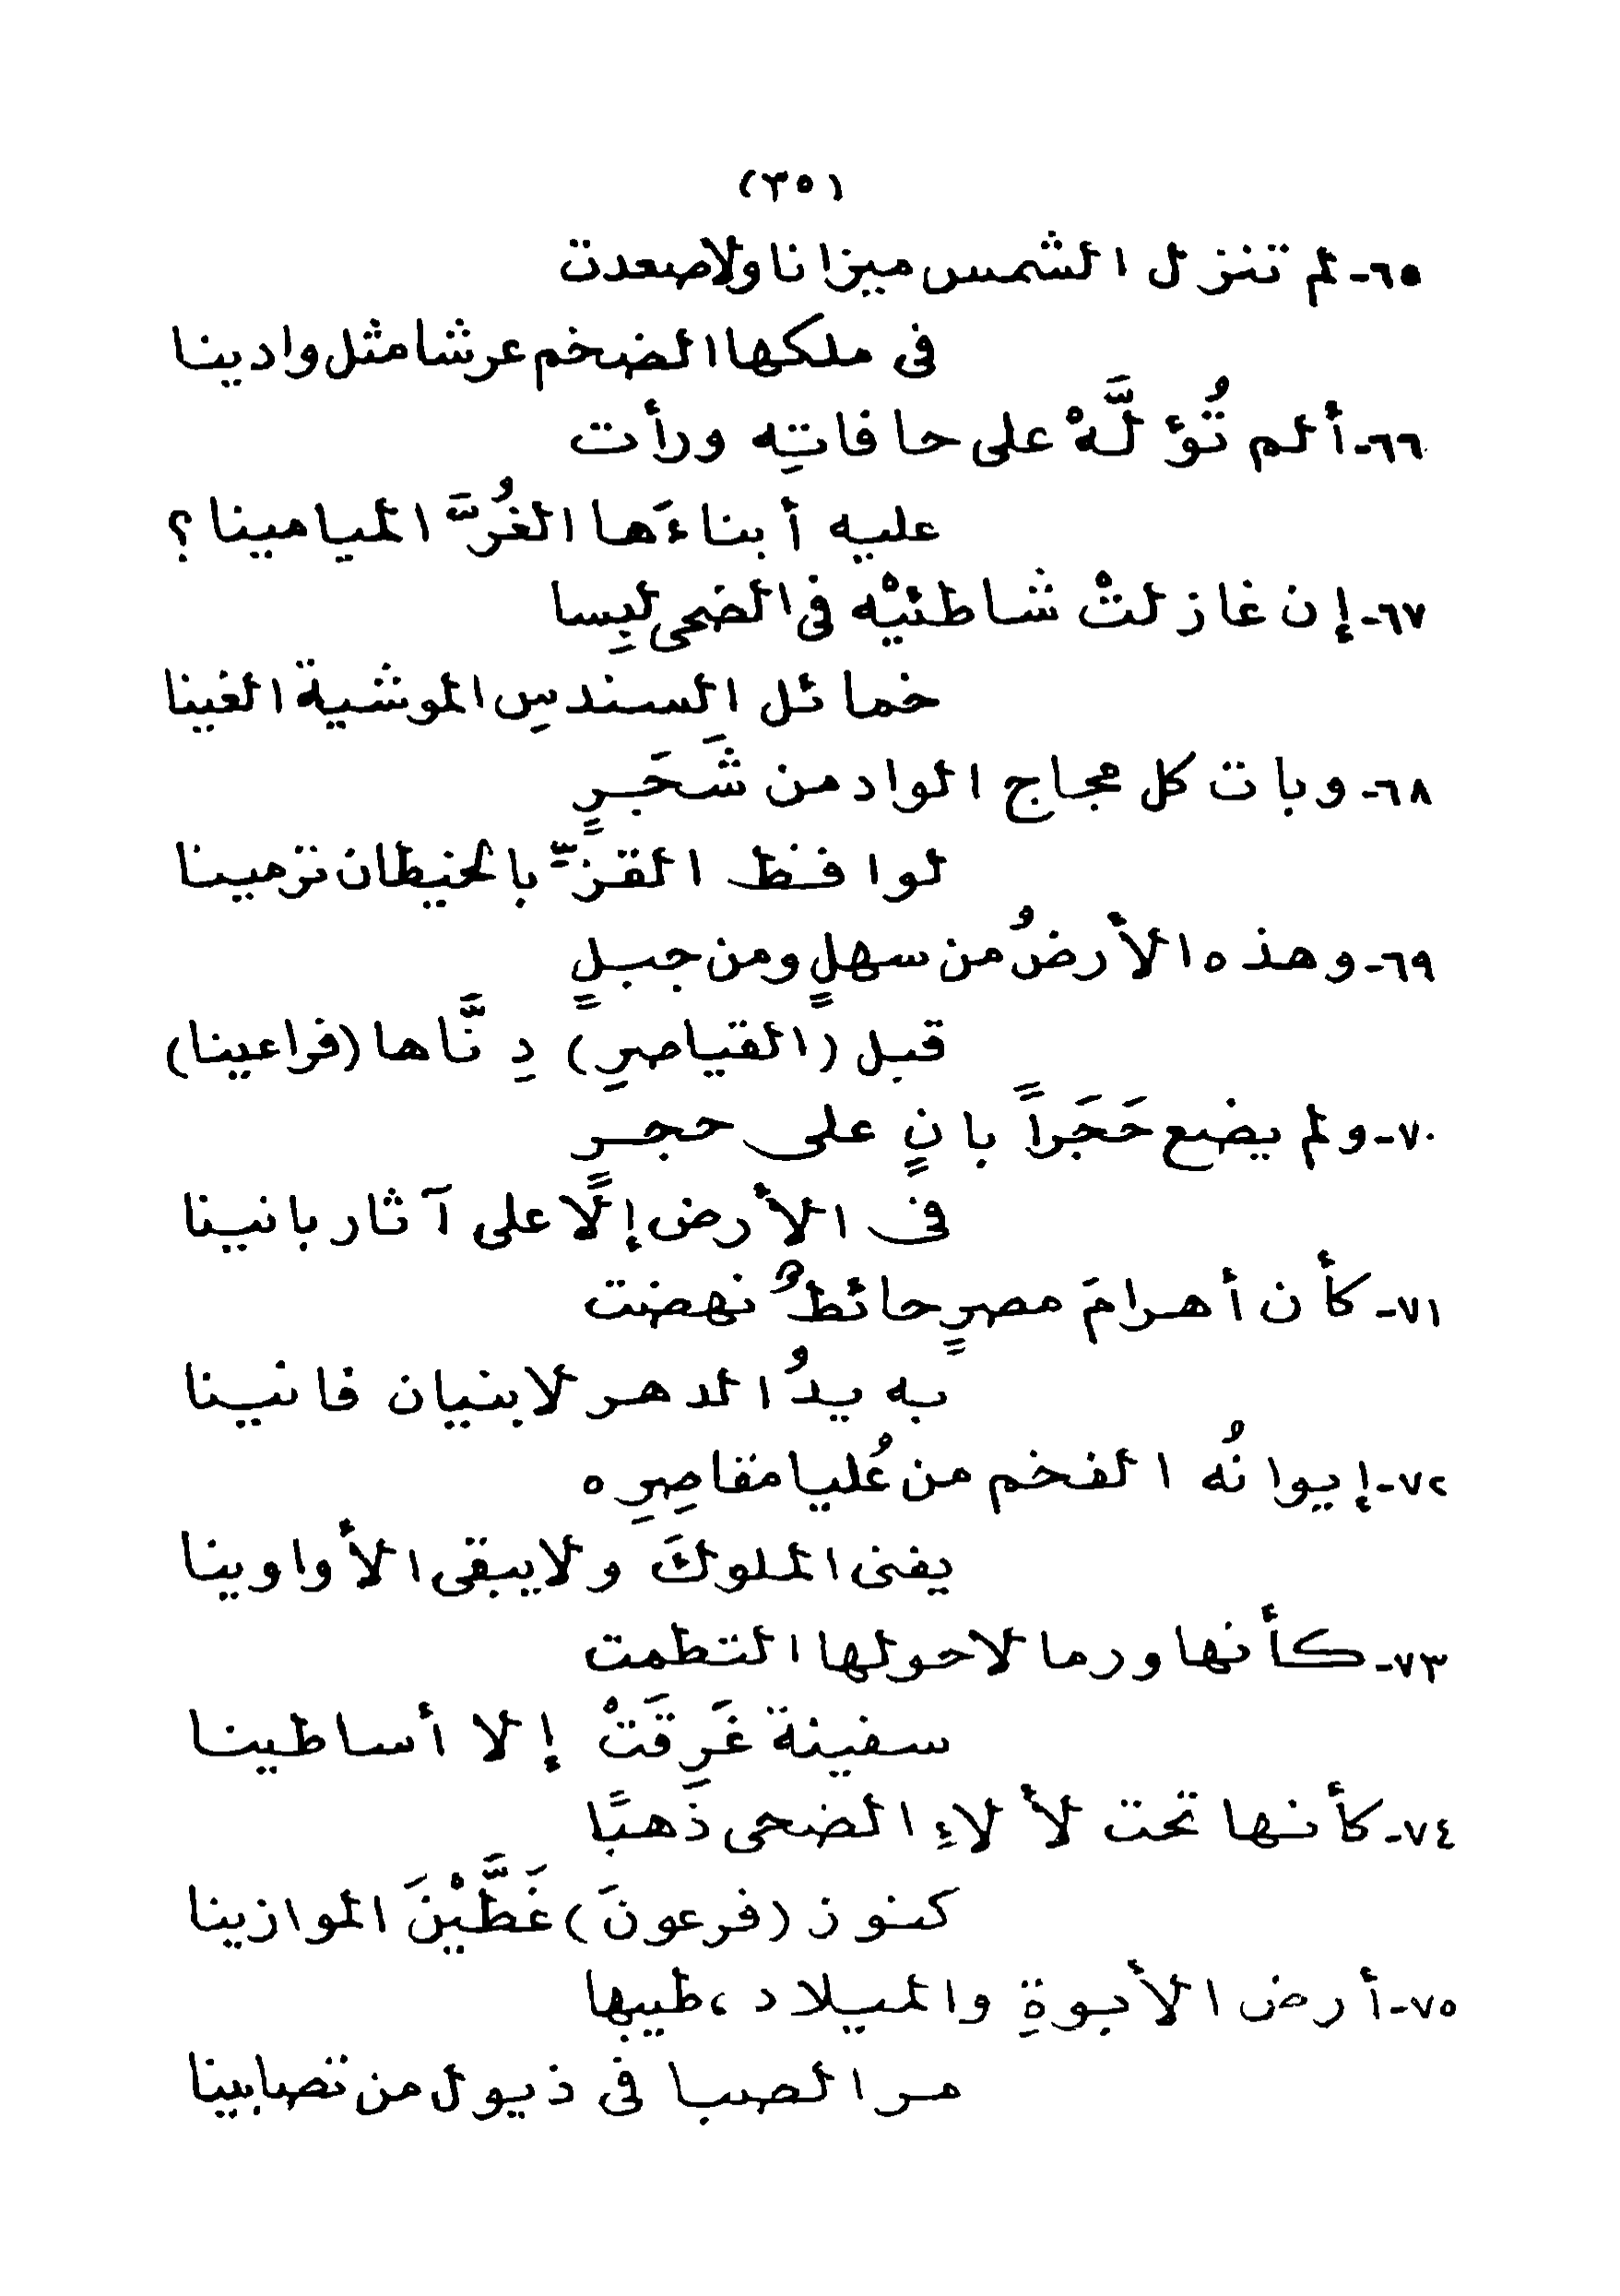 (٣٥)
٦٥- لم تنزل الشمس ميزانا ولا صعدت
فى ملكها الضخم عرشا مثل وادينا
٦٦- ألم تُؤلَّهْ على حافاتِه ورأت
عليه أبناءَها الغُرَّ الميامينا ؟
٦٧- إن غازلتْ شاطئيْه فى الضحى لبِسا
خمائل السندسِ الموشية الغينا
٦٨- وبات كل مجاج الواد من شَجَرٍ
لوافظ القزّ بالخيطان ترمينا
٦٩- وهذه الأرضُ من سهلٍ ومن جبلٍ
قبل (القياصرِ) دِنَّاها (فراعينا)
٧٠- ولم يضع حَجَراً بانٍ على حجرٍ
فى الأرض إلّا على آثار بانينا
٧١- كأن أهرامَ مصرٍ حائطٌ نهضت
به يدُ الدهر لا بنيان فانينا
٧٢- إيوانُه الفخم من عُليا مقاصِرِه
يفنى الملوكَ ولا يبقى الأواوينا
٧٣- كأنها ورمالا حولها التطمت
سفينة غَرِقَتْ إلا أساطينا
٧٤- كأنها تحت لألاءِ الضحى ذَهبًا
كنوز (فرعونَ) غَطَّيْنَ الموازينا
٧٥- أرض الأبوةِ والميلاد، طيبها
مر الصبا فى ذيول من تصابينا